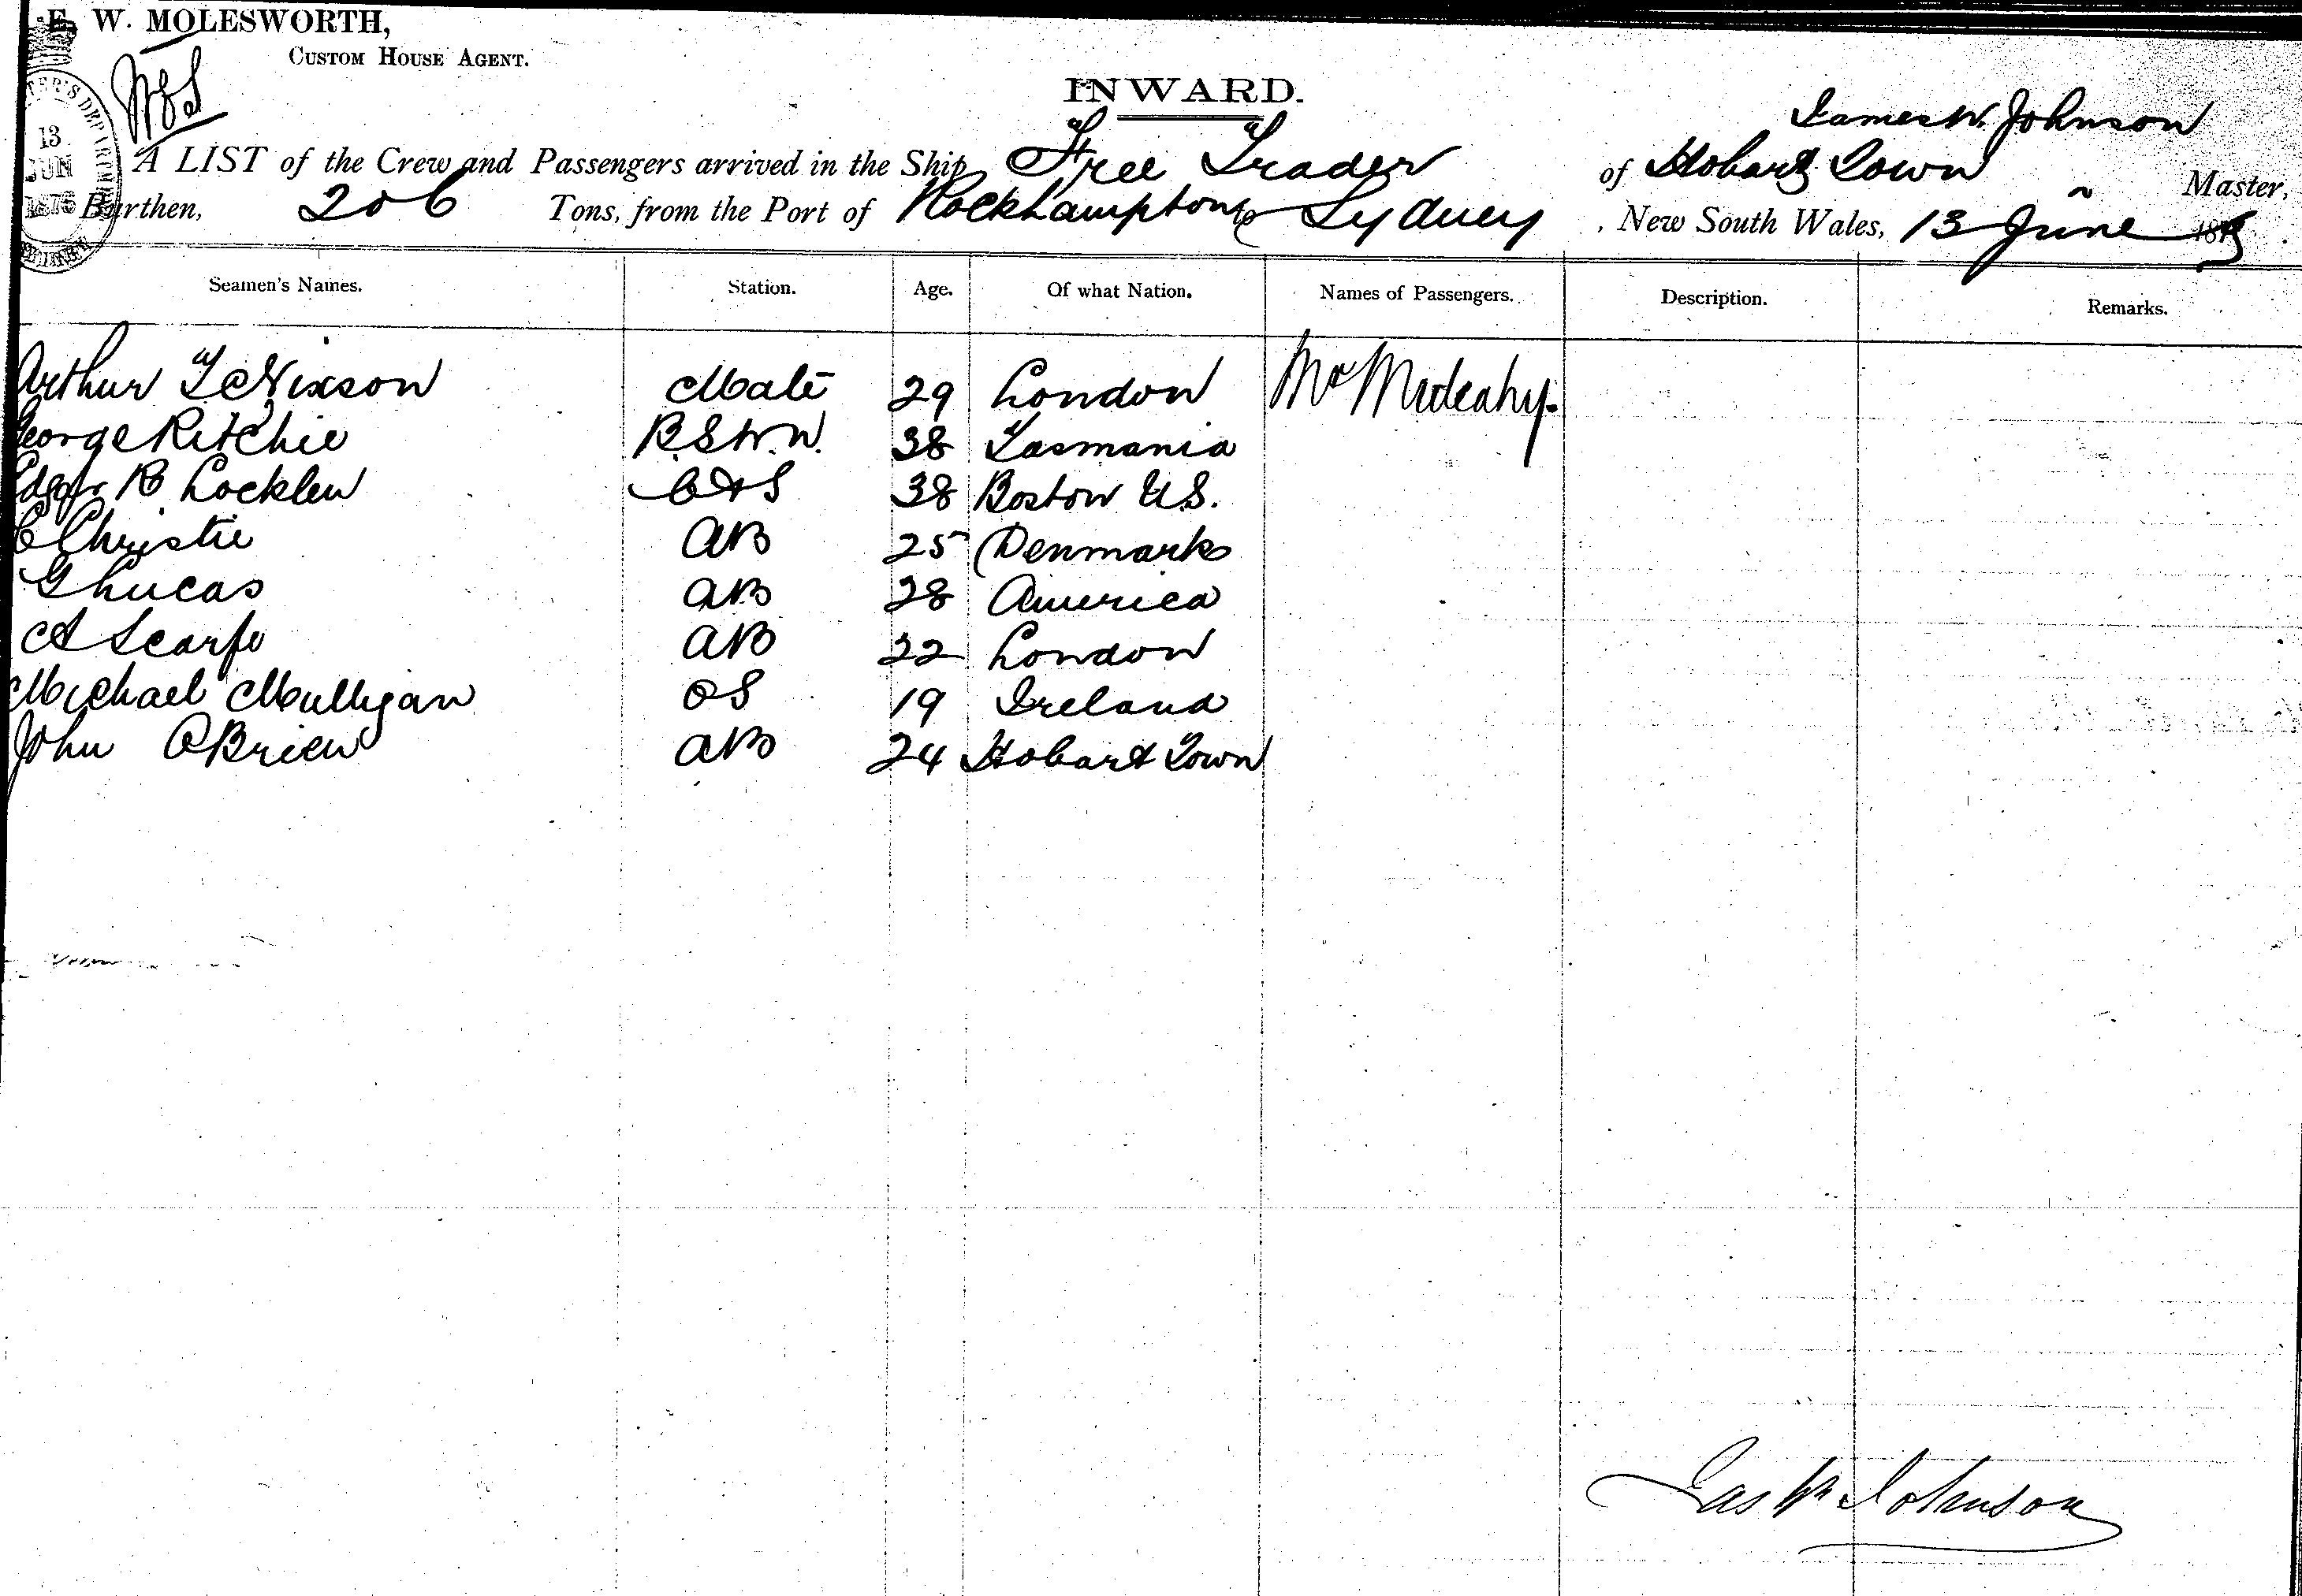 E. W. MOLESWORTH,
CUSTOM HOUSE AGENT.
INWARD.
13 JUN
James W. Johnson
A LIST of the Crew and Passengers arrived in the Ship Free Trader of Hobart Town Master,
Burthen, 206 Tons, from the Port of Rockhampton to Sydney, New South Wales, 13 June 187
Seamen's Names. Station. Age. Of what Nation. Names of Passengers. Description. Remarks.
Arthur Nixson Mate 29 London Mr
George Ritchie BSWN. 38 Tasmania
Edgar R Locklen C&S 38 Boston U.S.
C Christie AB 25 Denmark
G Lucas AB 28 America
A Scarfe AB 22 London
Michael Mulligan OS 19 Ireland
John OBrien AB 24 Hobart Town
Jas W Johnson